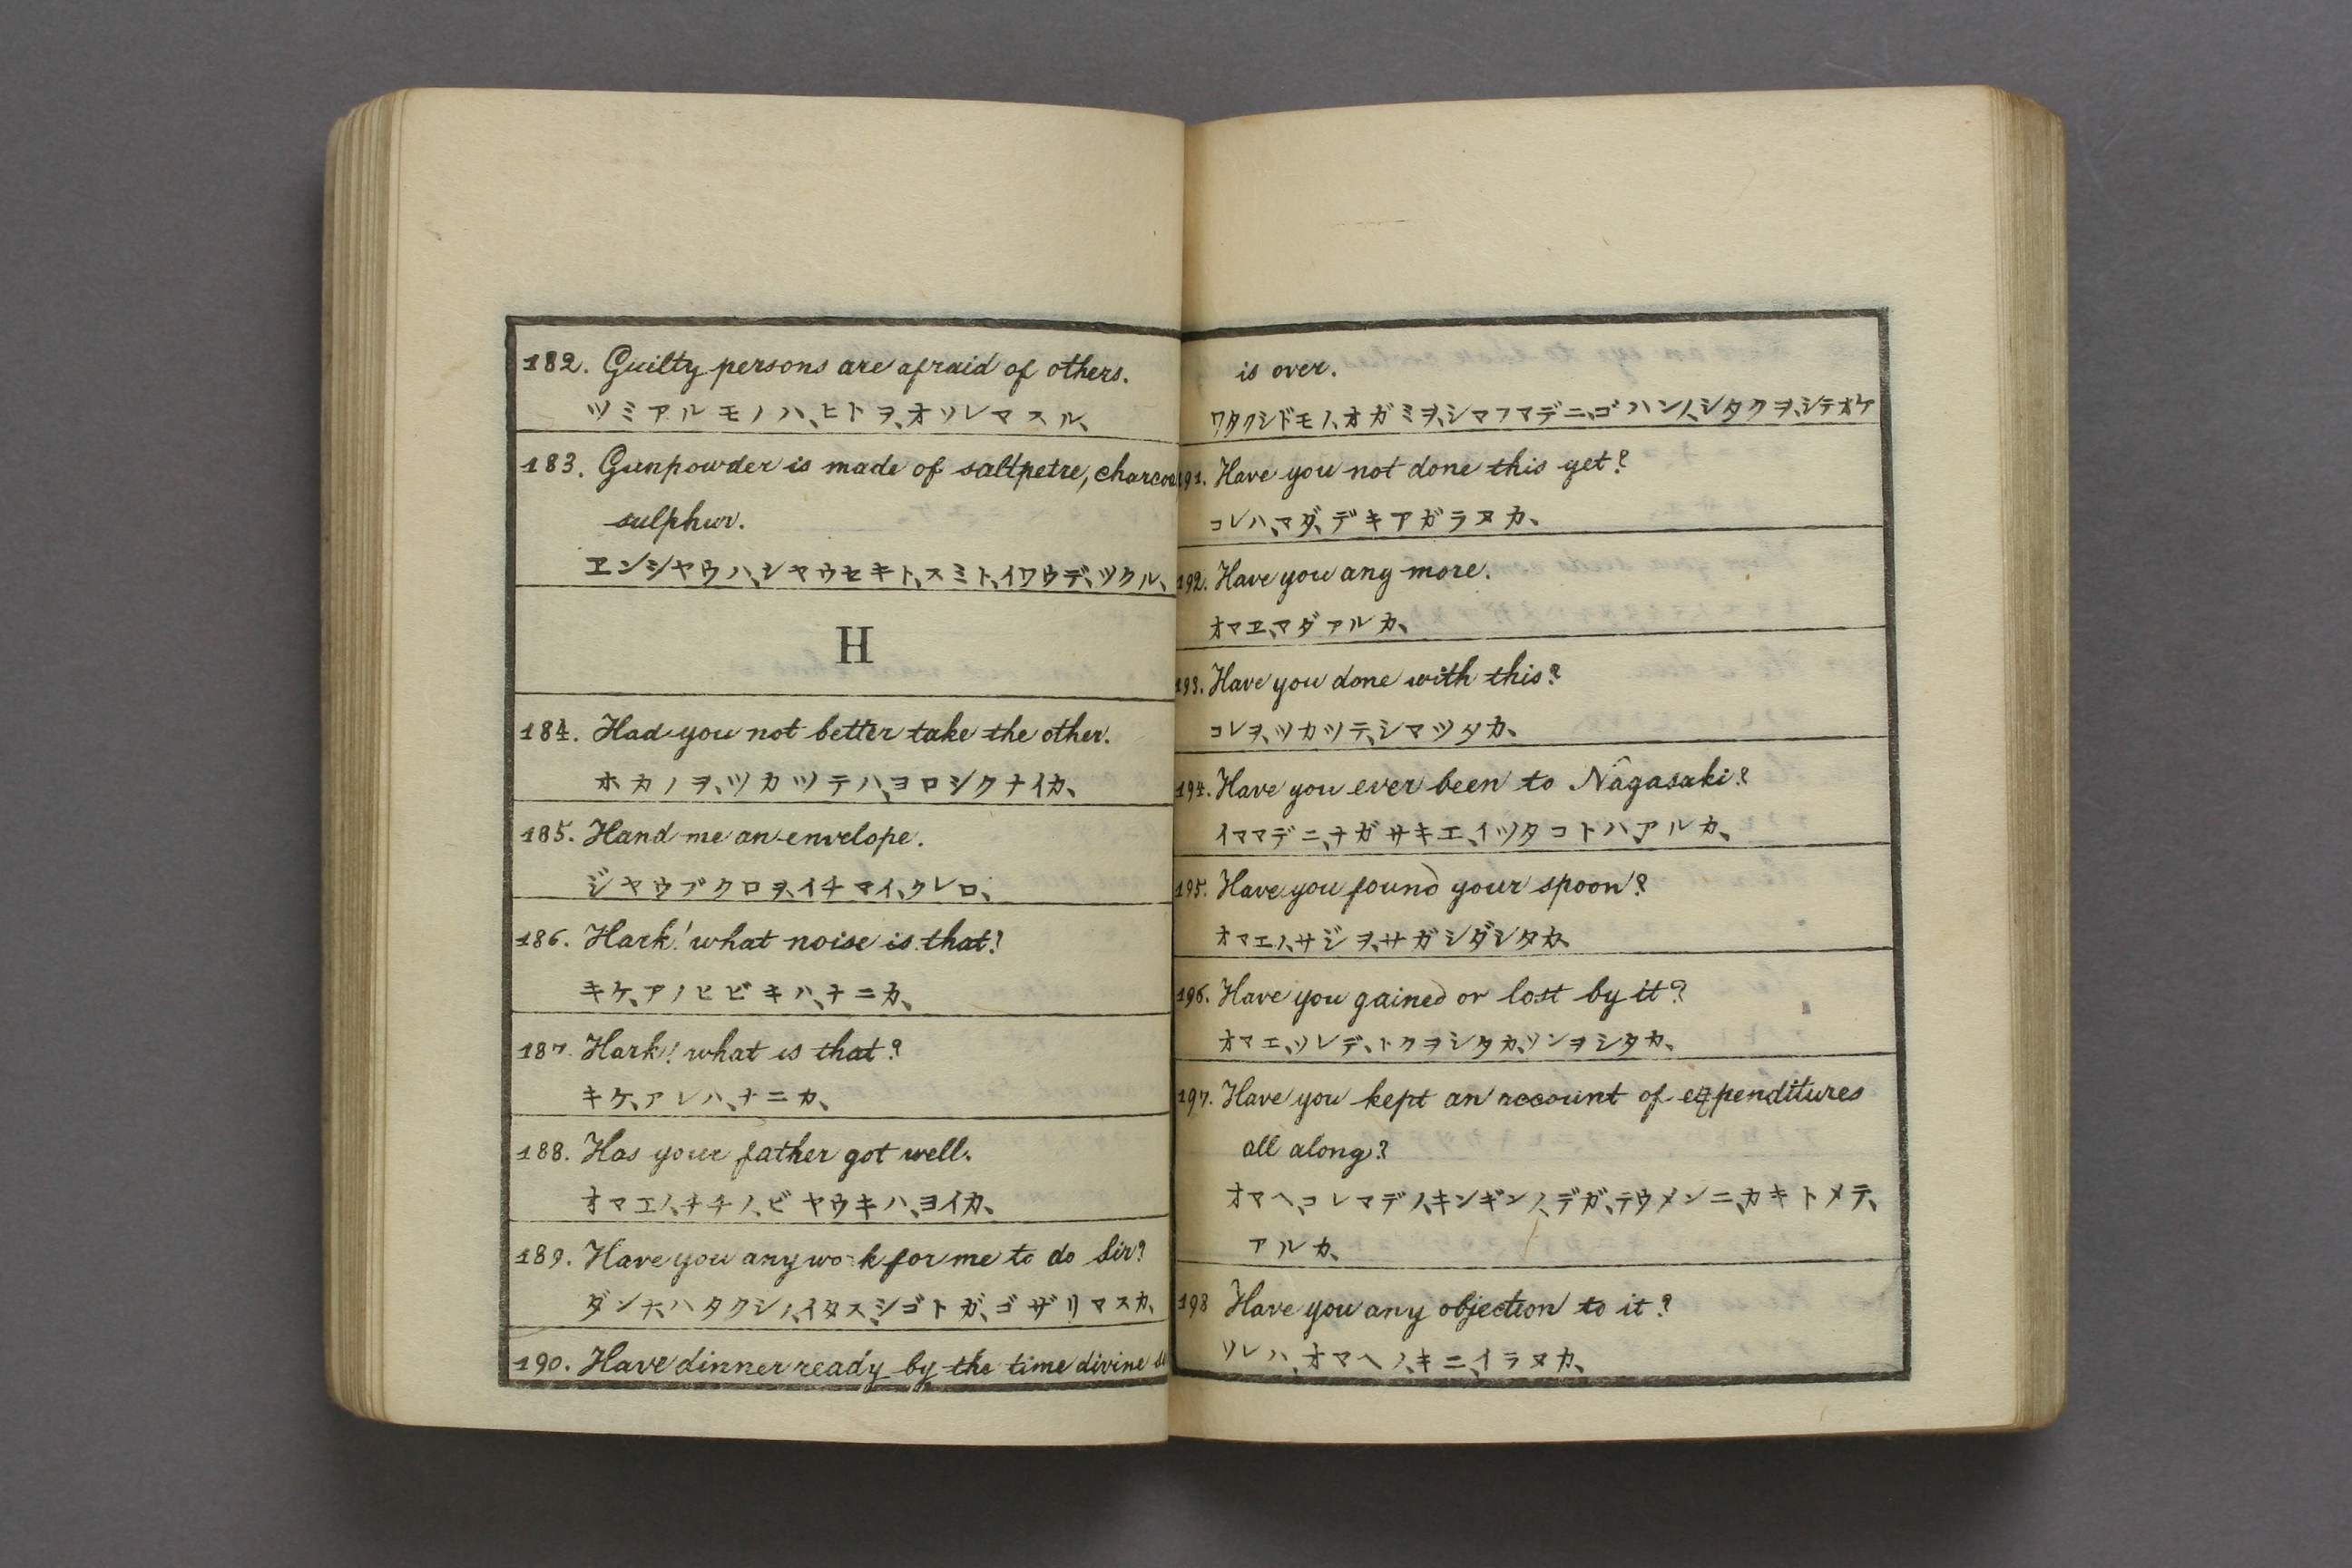 182. Guilty persons are afraid of others.
ツミアルモノハ、ヒトヲ、オソレマスル、
183. Gunpowder is made of saltpetre, charcoa
sulphur.
ヱンシヤウハ、シヤウセキト、スミト、イワウデ、ツクル、
H
184. Had you not better take the other.
ホカノヲ、ツカツテハ、ヨロシクナイカ、
185. Hand me an envelope.
ジヤウブクロヲ、イチマイ、クレロ、
186. Hark! what noise is that?
キケ、アノヒビキハ、ナニカ、
187. Hark! what is that?
キケ、アレハ、ナニカ、
188. Has your father got well.
オマエノ、チチノ、ビヤウキハ、ヨイカ、
189. Have you any wo k for me to do Sir?
ダンナ、ハタクシノ、イタス、シゴトガ、ゴザリマスカ、
190. Have dinner ready by the time divine se
is over.
ワタクシドモノ、オガミヲ、シマフマデニ、ゴハンノ、シタクヲ、シテオケ
191. Have you not done this yet?
コレハ、マダ、デキアガラヌカ、
192. Have you any more.
オマヱ、マダアルカ、
193. Have you done with this?
コレヲ、ツカツテ、シマツタカ、
194. Have you ever been to Nâgasaki?
イママデニ、ナガサキエ、イツタコトハ、アルカ、
195. Have you found your spoon?
オマエノ、サジヲ、サガシダシタカ、
196. Have you gained or lost by it?
オマエ、ソレデ、トクヲシタカ、ソンヲシタカ、
197. Have you kept an account of expenditures
all along?
オマヘ、コレマデノ、キンギンノ、デガ、テウメンニ、カキトメテ、
アルカ、
198 Have you any objection to it?
ソレハ、オマヘノ、キニ、イラヌカ、